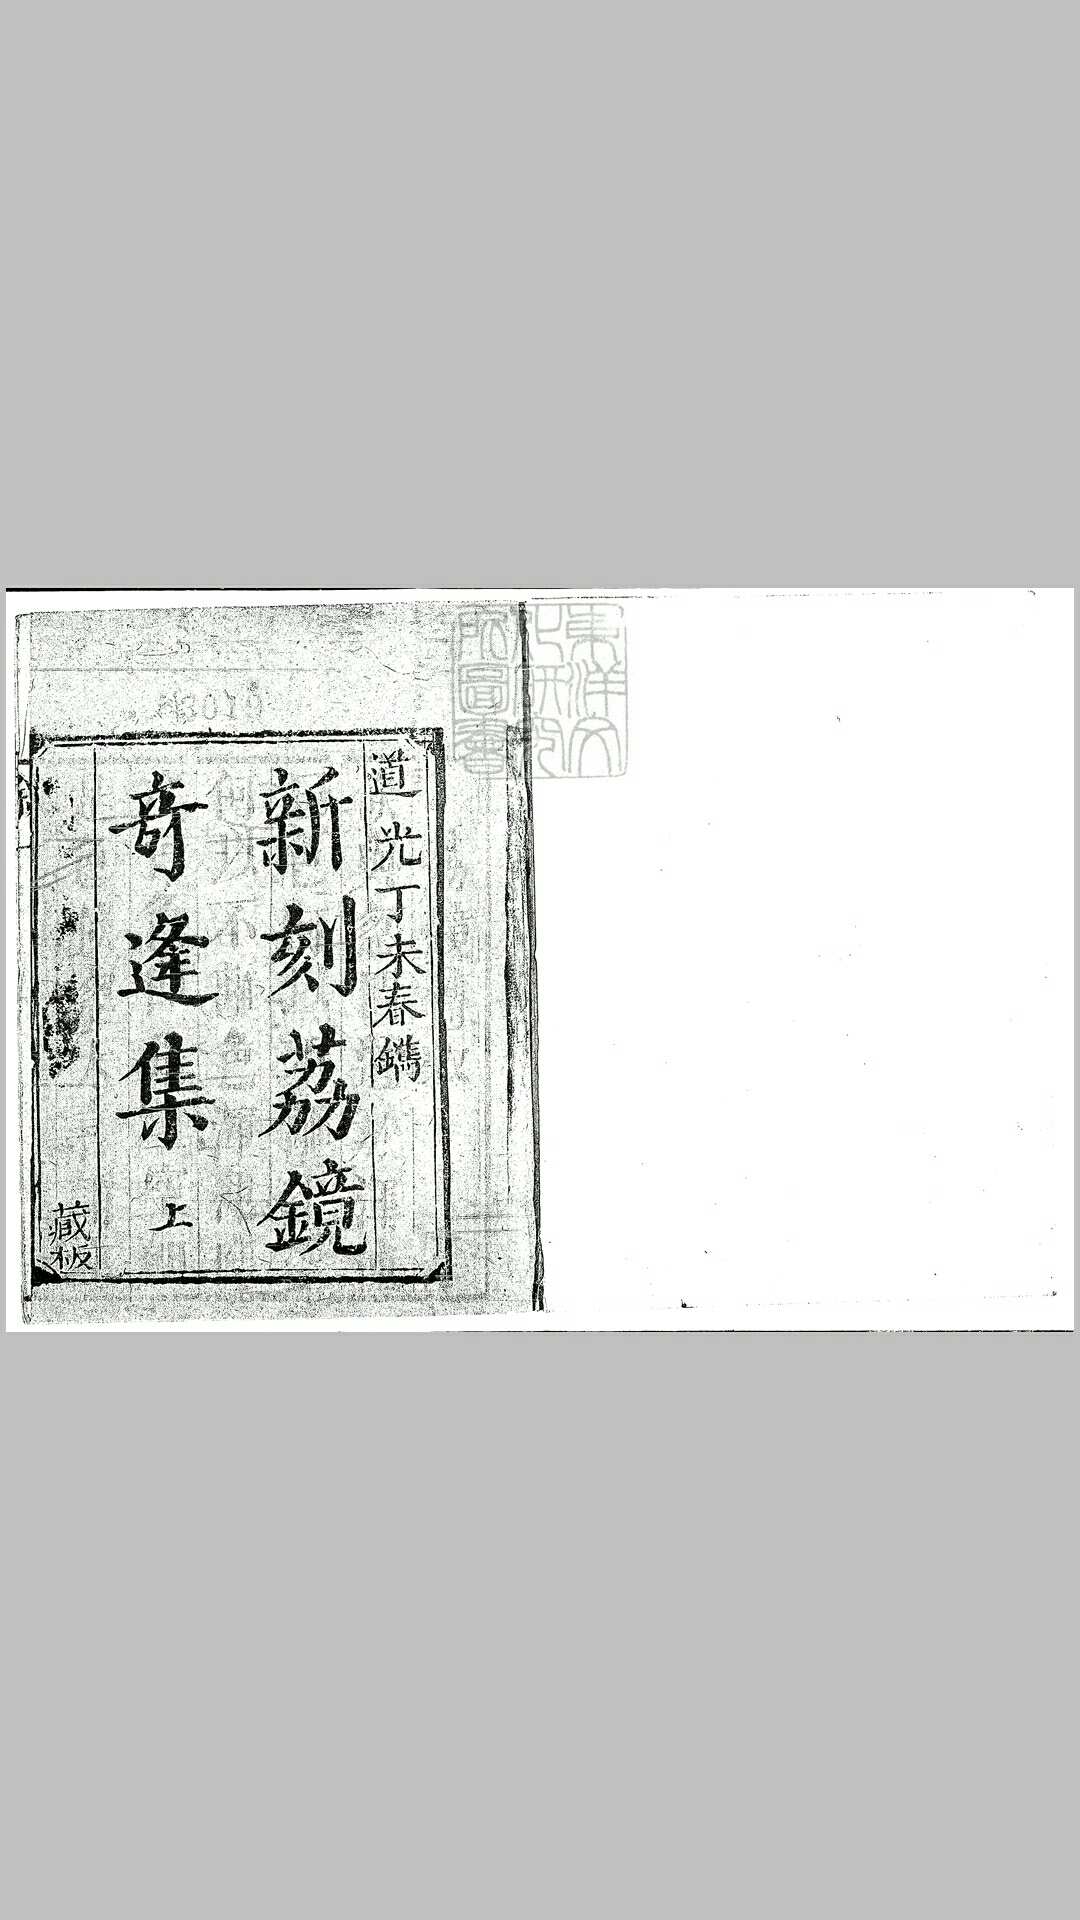 東洋文
化研究
所圖書
道光丁未春鐫
新刻荔鏡
奇逢集 上
藏板